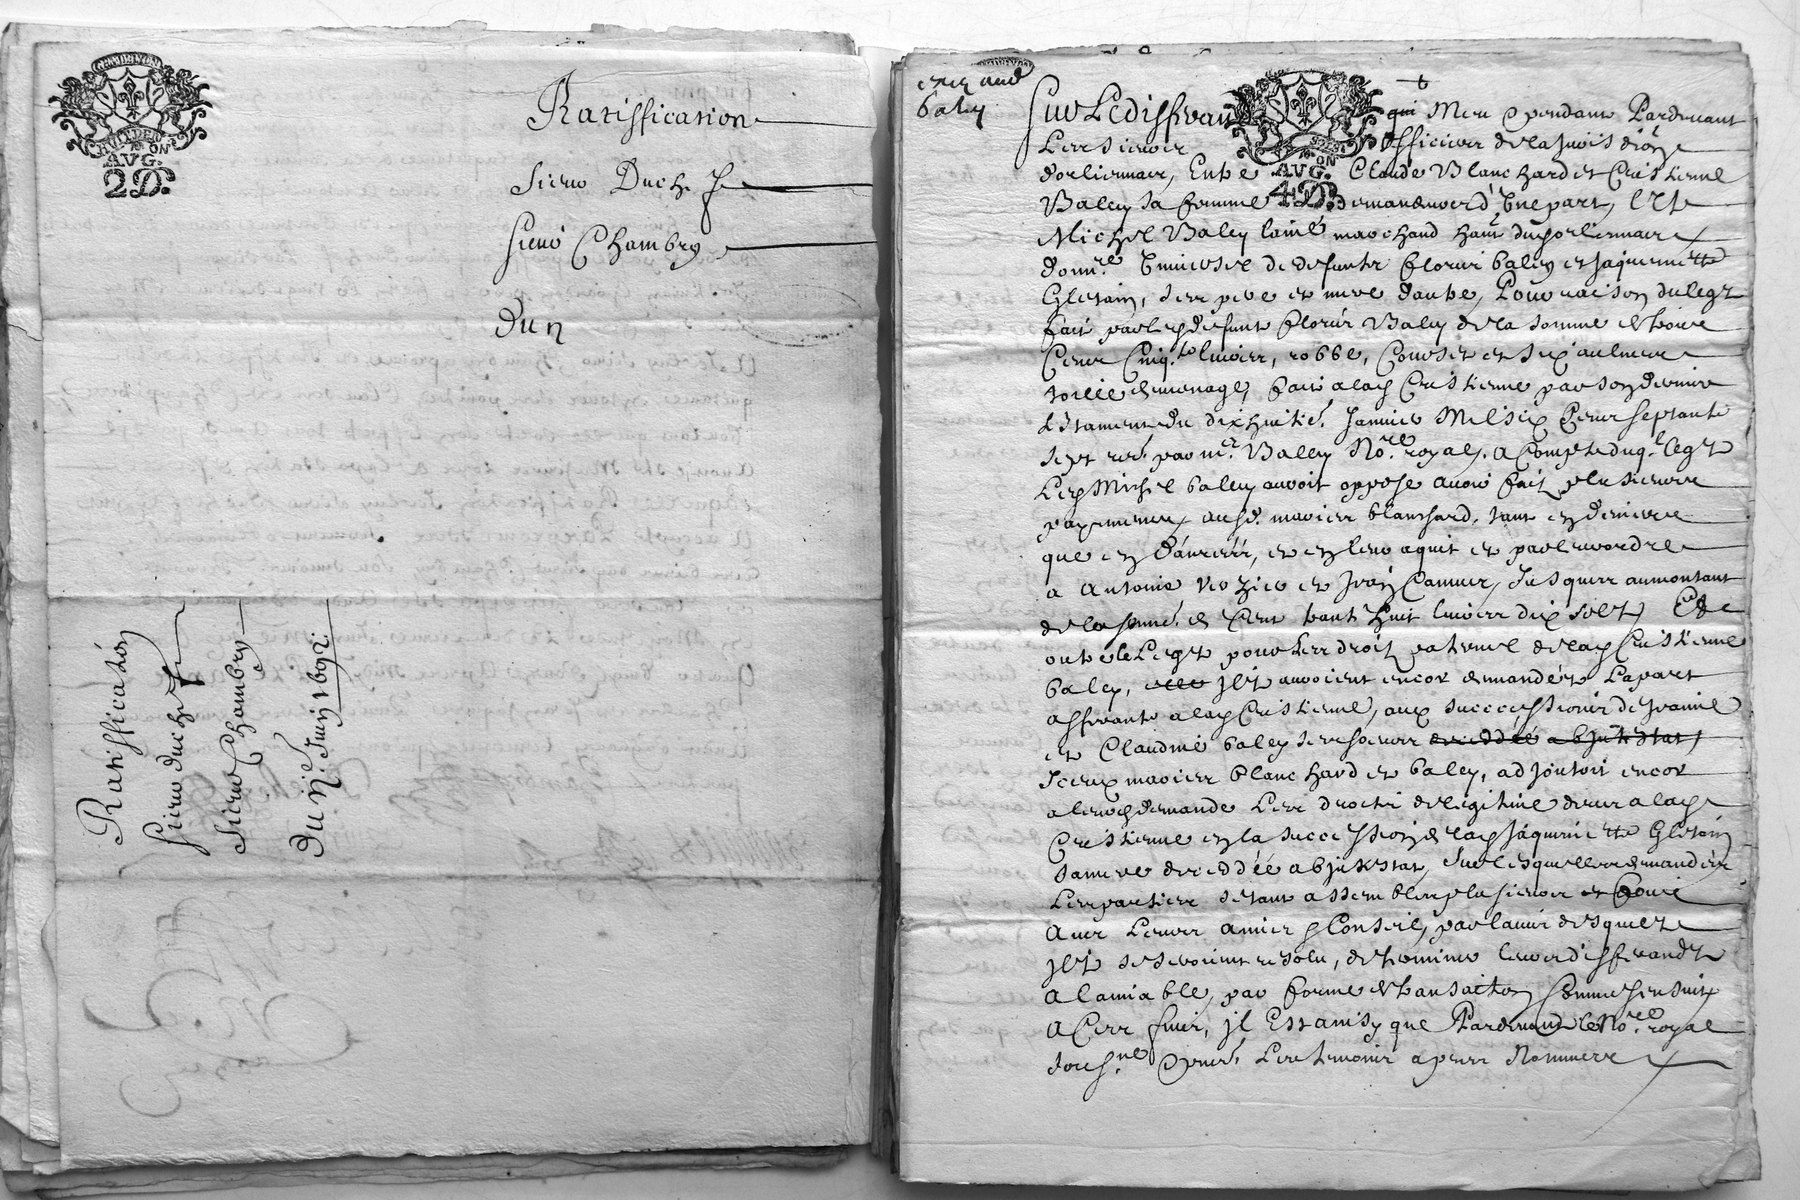 GEN. DE LYON
AVG.
2D.
Ratiffication
Sieur Duch
Sieur Chambry
Du n
Ratiffication
Sieur duche
Sieur Chambry
Du n Juin 1692
baley
AVG.
4D.
Sur Le diffran qui Meu & pendant Pardevant
Les sieurs officiers de la
dorliennas, Entre Claude Blanchard et Cristienne
Baley sa femme demandeurs d'Une part, Et
Michel Baley laine marchand dud orliennas
donn.re Universel de defuncts Flory baley et Jaquemette
Gletain, ses pere et mere dautre, Pour raison du legt
fait par led defunt Baley de la somme de trois
Cens Cinq.te livres, robbe, et six aulnes
toille de menage, fait a lad Cristienne par son dernier
testament du dix huitie. Janvier Mil six Cens septante
sept rec. par m.e Baley No.re royal, a Compte duq.l legt
Led Michel baley avoit oppose avoir fait plusieurs
payemens ausd. maries blanchard, tant en deniers
que en danrees, et en leur aquit et par leur ordre
a Antoine et Camus, Jusques au montant
de la somme de Cent trante huit livres dix solt, Et
outre le Legt pour les droit paternel de lad Cristienne
baley, Ilt avoient encor demandé La part
affrante a lad Cristienne, aux successions de
et Claudine baley ses soeurs decedéé abJntestat,
Iceux maries blanchard et baley, adJoutoit encor
a leurd demande Les droits de legitime deus a lad
Cristienne en la succession de lad Jaquemette Gletain
sa mere decedéé abJntestat, Sur lesquelles demandes
Les parties setant assemblees plusieurs fois
Avec Leurs amis & Conseil, par lavis desquelt
Ilt seseroient resolu, de terminer leurs diffrandt
A lamiable, par forme de transaction Comme sensuit
A Ces fins, il Est ainsy que Pardevant le No.re royal
soubs.ne & pnts. Les temoins apres Nommes